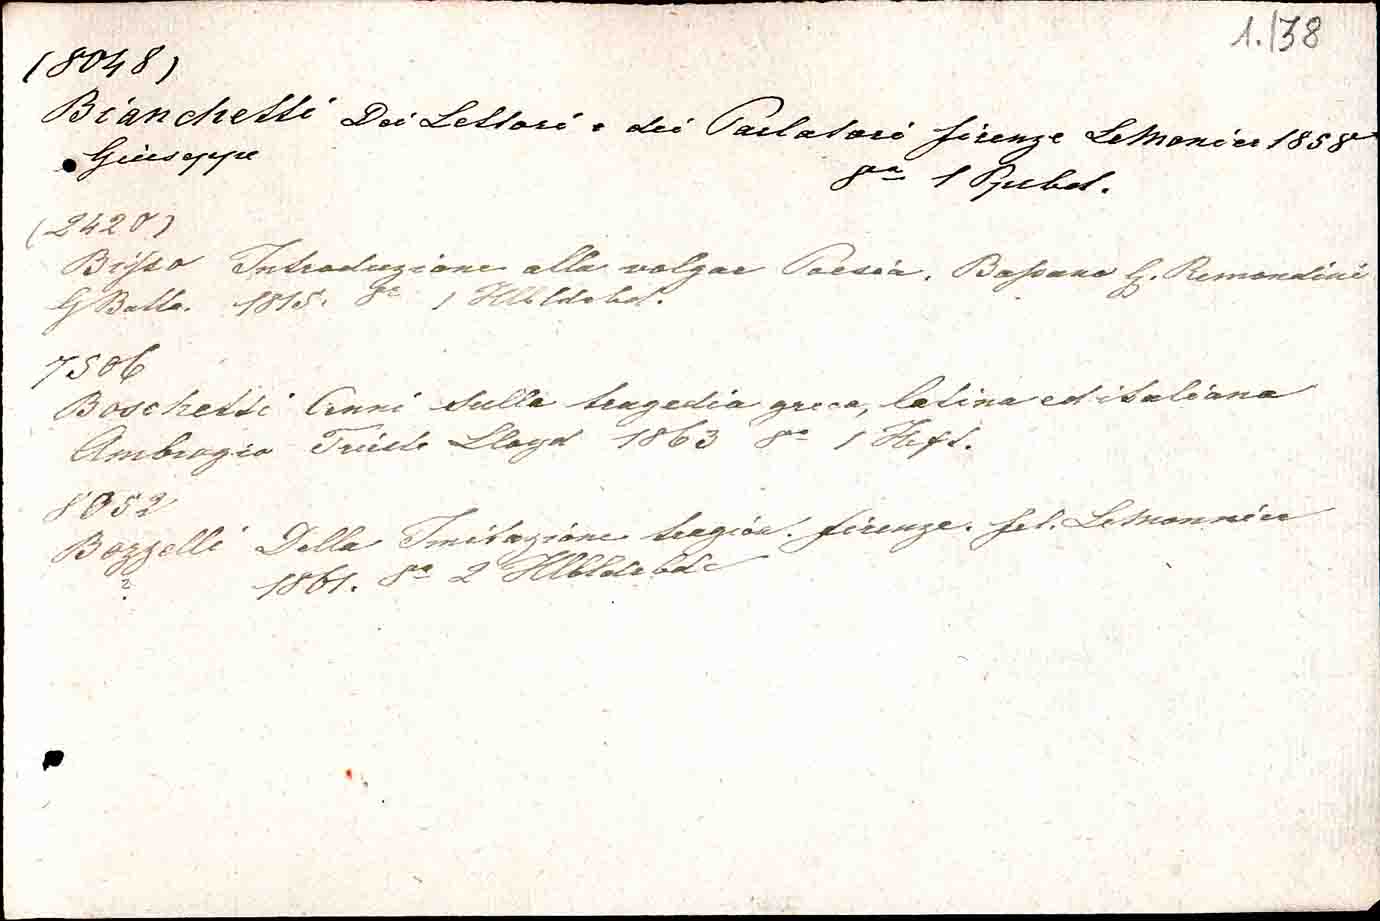 1.138
(8048)
Bianchetti Dei Lettori e dei Parlatori firenze LeMonier 1858
Giuseppe
8va 1 Ppbd.
(2420)
Bisso Introduzione alla volgar Poesia. Bassano G. Remondini
G Batta. 1815. 8° 1 Hlbldrbd.
7506
Boschetti Cenni sulla tragedia greca, latina ed italiana
Ambrogio Trieste Lloyd 1863 8° 1 Heft.
8052
Bozzelli Della Imitazione tragica. firenze. fel. LeMonnier
? 1861. 8° 2 Hlbldrbde